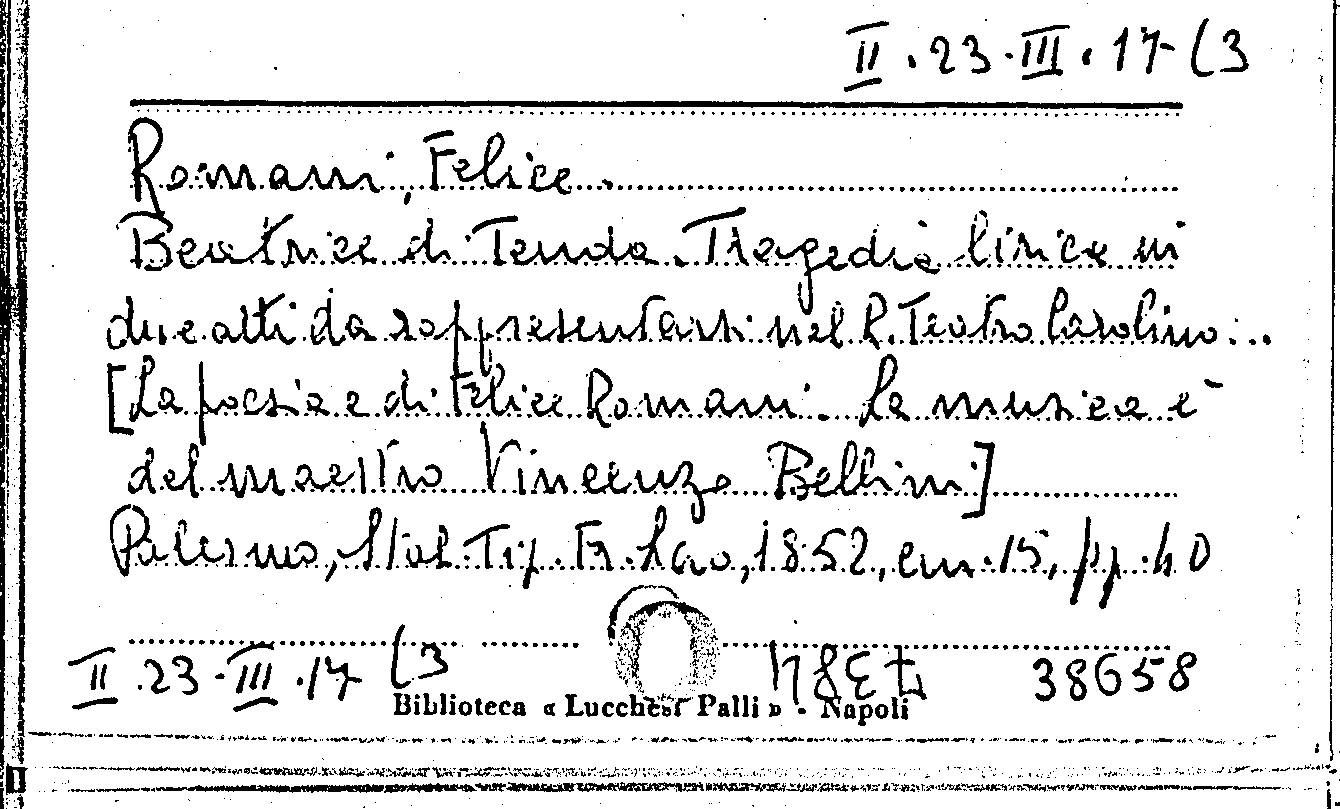 II.23.III.17(3
Romani, Felice.
Beatrice di Tenda. Tragedia lirica in
due atti da rappresentarsi nel R. Teatro Carolino...
[La poesia e di Felice Romani. La musica è
del maestro Vincenzo Bellini]
Palermo, Stab. Tip. Fr. Lao, 1852, cm. 15, pp. 40
II.23.III.17(3
38658
Biblioteca « Lucchesi Palli » - Napoli